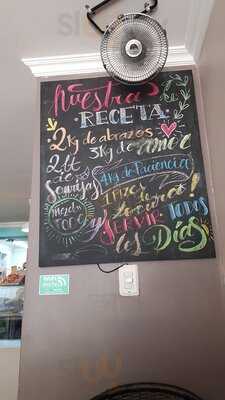 Nuestra
RECETA
2Kg de abrazos
3Kg de amor
2Lt
de
Sonrisas
4Kg de Paciencia
Mezclar
TODO
y SERVIR TODOS
los Días